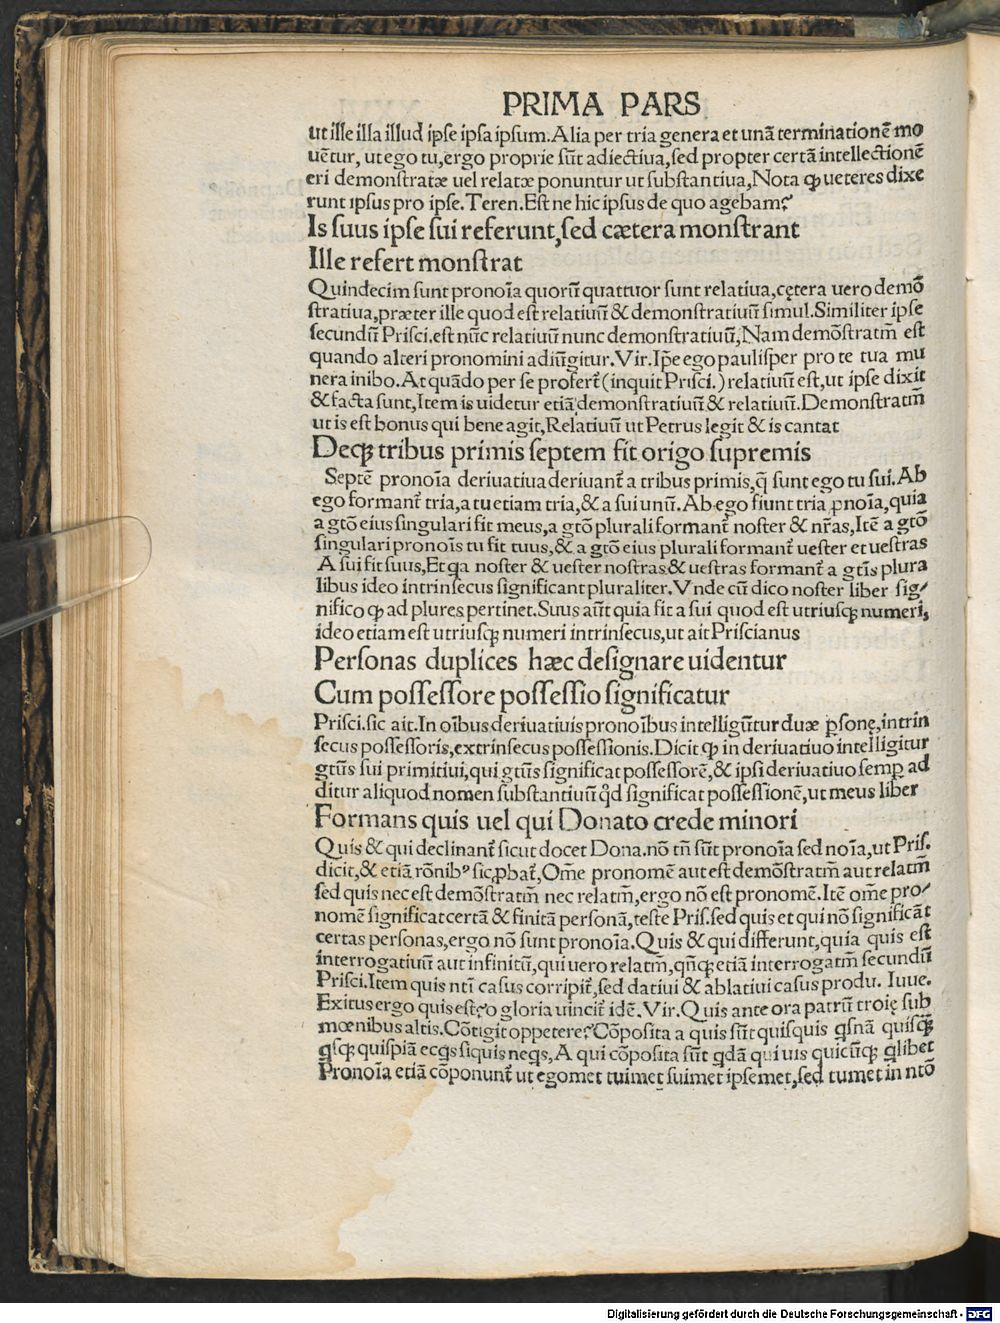 PRIMA PARS
ut ille illa illud ipse ipsa ipsum. Alia per tria genera et unā terminationē mo
uētur, ut ego tu, ergo proprie sūt adiectiua, sed propter certā intellectionē
eri demonstratæ uel relatæ ponuntur ut substantiua, Nota ꝙ ueteres dixe
runt ipsus pro ipse. Teren. Est ne hic ipsus de quo agebam?
Is suus ipse sui referunt, sed cætera monstrant
Ille refert monstrat
Quindecim sunt pronoīa quorū quattuor sunt relatiua, cętera uero demō
stratiua, præter ille quod est relatiuū & demonstratiuū simul. Similiter ipse
secundū Prisci. est nūc relatiuū nunc demonstratiuū, Nam demōstratm̄ est
quando alteri pronomini adiūgitur. Vir. Ip̄e ego paulisper pro te tua mu
nera inibo. At quādo per se profert᷑ (inquit Prisci.) relatiuū est, ut ipse dixit
& facta sunt, Item is uidetur etiā demonstratiuū & relatiuū. Demonstratm̄
ut is est bonus qui bene agit, Relatiuū ut Petrus legit & is cantat
Decꝙ tribus primis septem fit origo supremis
Septē pronoīa deriuatiua deriuant᷑ a tribus primis, q̄ sunt ego tu sui. Ab
ego formant᷑ tria, a tu etiam tria, & a sui unū. Ab ego fiunt tria ꝓnoīa, quia
a gtō eius singulari fit meus, a gtō plurali formant᷑ noster & nr̄as, Itē a gtō
singulari pronoīs tu fit tuus, & a gtō eius plurali formant᷑ uester et uestras
A sui fit suus, Et ꝗa noster & uester nostras & uestras formant᷑ a gtīs plura
libus ideo intrinsecus significant pluraliter. Vnde cū dico noster liber sig⸗
nifico ꝙ ad plures pertinet. Suus aūt quia fit a sui quod est utriusꝙ numeri,
ideo etiam est utriusꝙ numeri intrinsecus, ut ait Priscianus
Personas duplices hæc designare uidentur
Cum possessore possessio significatur
Prisci. sic ait. In oībus deriuatiuis pronoībus intelligūtur duæ ꝑsonę, intrin
secus possessoris, extrinsecus possessionis. Dicit ꝙ in deriuatiuo intelligitur
gtūs sui primitiui, qui gtūs significat possessorē, & ipsi deriuatiuo semꝑ ad
ditur aliquod nomen substantiuū qd̄ significat possessionē, ut meus liber
Formans quis uel qui Donato crede minori
Quis & qui declinant᷑ sicut docet Dona. nō tn̄ sūt pronoīa sed noīa, ut Pris.
dicit, & etiā rōnibꝰ sic ꝓbat᷑, Om̄e pronomē aut est demōstratm̄ aut relatm̄
sed quis nec est demōstratm̄ nec relatm̄, ergo nō est pronomē. Itē om̄e pro⸗
nomē significat certā & finitā personā, teste Pris. sed quis et qui nō significāt
certas personas, ergo nō sunt pronoīa. Quis & qui differunt, quia quis est
interrogatiuū aut infinitū, qui uero relatm̄, qn̄ꝙ etiā interrogatm̄ secundū
Prisci. Item quis nt̄i casus corripit᷑, sed datiui & ablatiui casus produ. Iuue.
Exitus ergo quis est? o gloria uincit᷑ idē. Vir. Quis ante ora patrū troię sub
mœnibus altis. Cōtigit oppetere? Cōposita a quis sūt quisquis ꝗsnā quisꝙ
ꝗsꝙ quispiā ecꝗs siquis neꝗs, A qui cōposita sūt ꝗdā qui uis quicūꝙ ꝗlibet
Pronoīa etiā cōponunt᷑ ut egomet tuimet suimet ipsemet, sed tumet in ntō
Digitalisierung gefördert durch die Deutsche Forschungsgemeinschaft - DFG